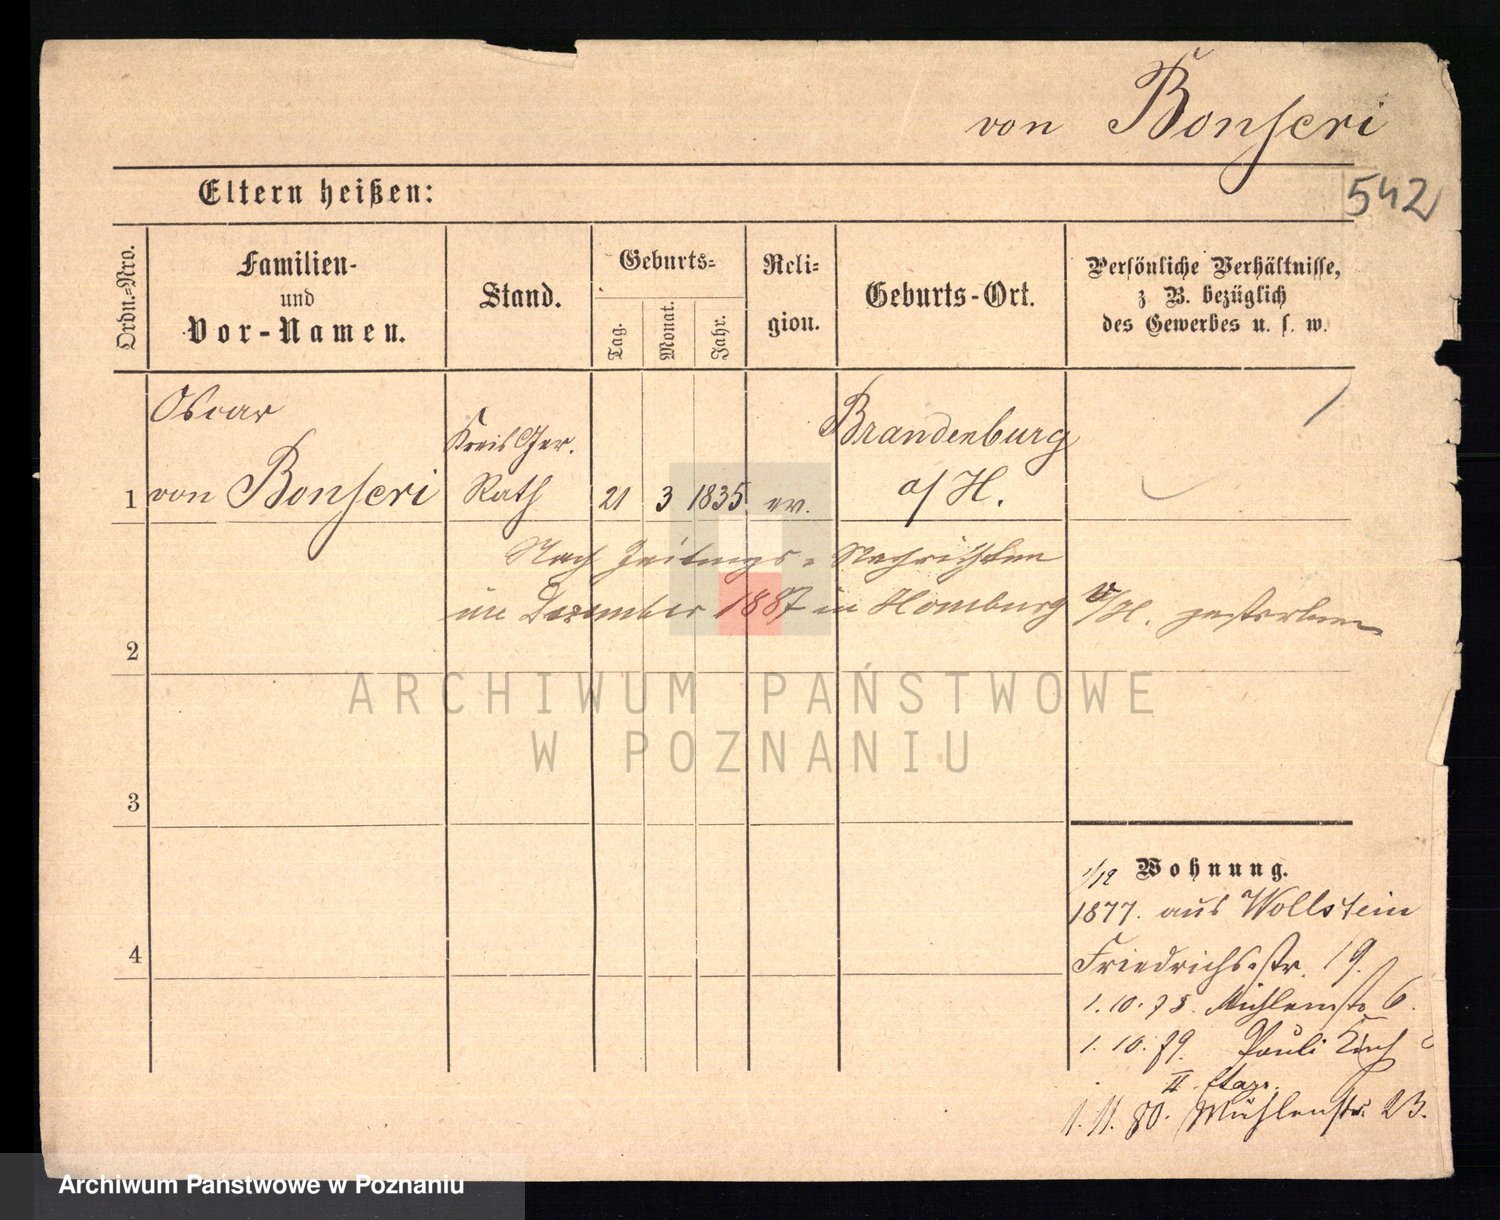 von Bonseri
542
Eltern heißen:
Ordn.-Nro.
Familien-
und
Vor-Namen.
Stand.
Geburts-
Tag.
Monat.
Jahr.
Reli-
gion.
Geburts-Ort.
Persönliche Verhältnisse,
z. B. bezüglich
des Gewerbes u. s. w.
Oscar
1 von Bonseri
Kreis Ger.
Rath
21 3 1835 ev.
Brandenburg
a/H.
Nach Zeitungs-Nachrichten
im Dezember 1887 in Homburg v/H. gestorben
2
3
4
Wohnung.
1/12
1877. aus Wollstein
Friedrichsstr. 19.
1.10.78. Mühlenstr 6.
1.10.79. Pauli Kirch
II. Etage.
1.11.80. Mühlenstr. 23.
ARCHIWUM PAŃSTWOWE
W POZNANIU
Archiwum Państwowe w Poznaniu